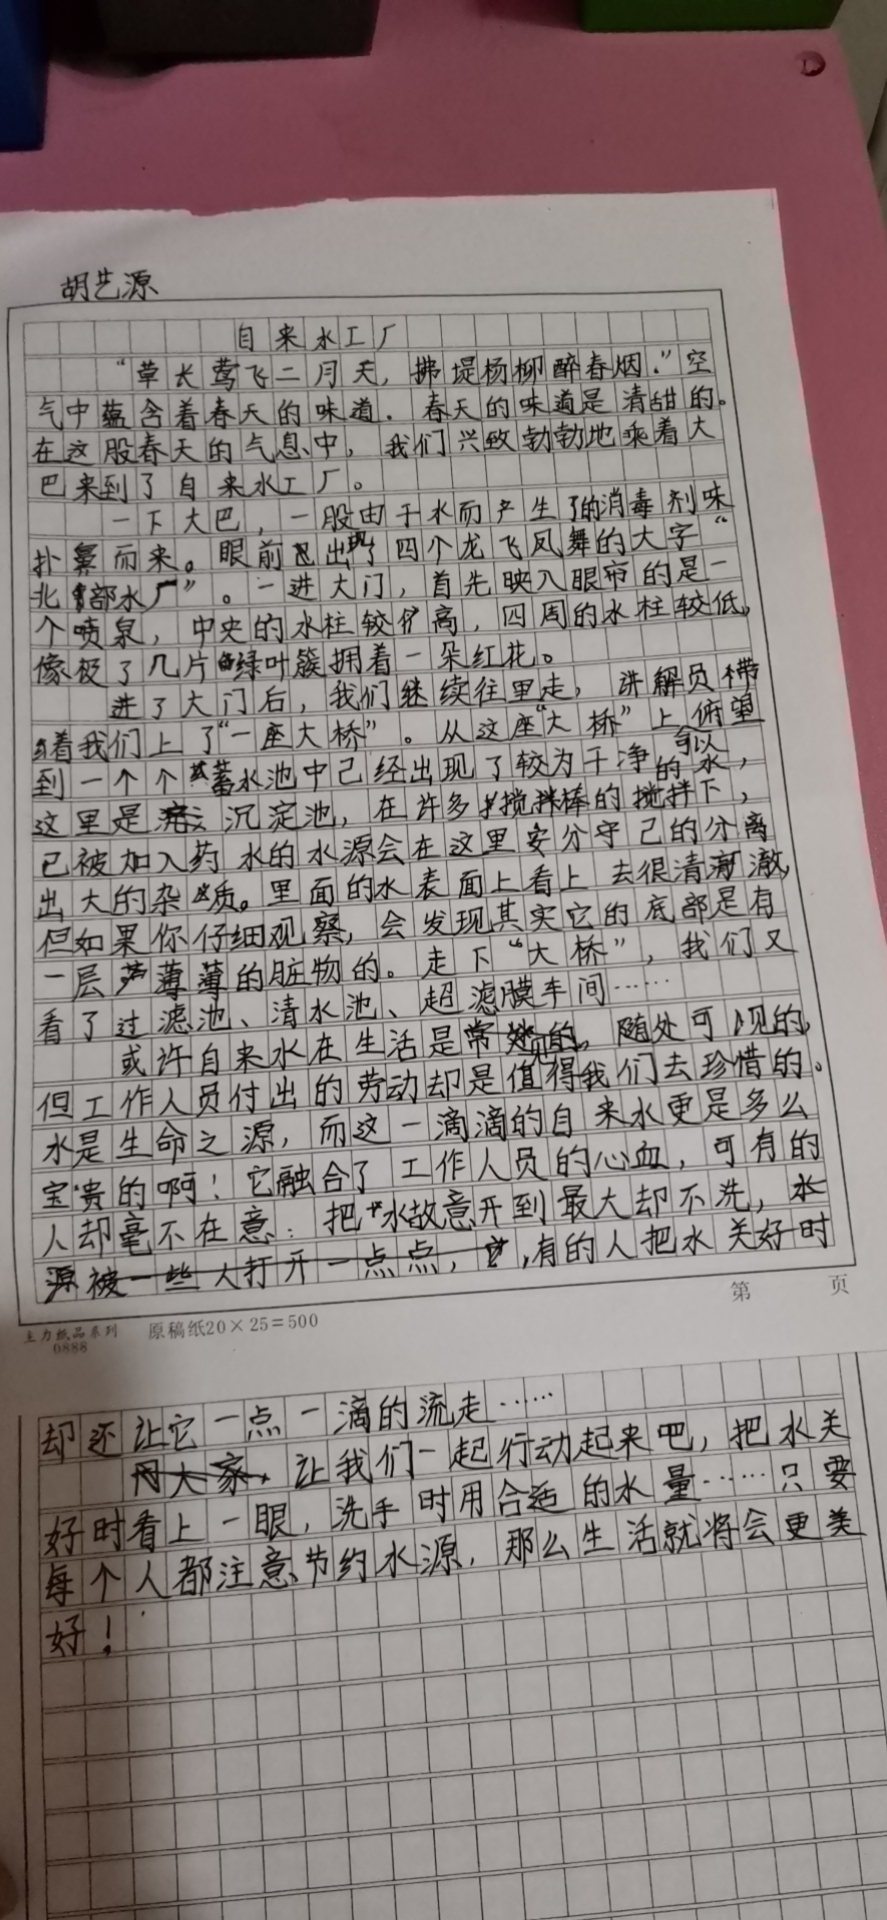 胡艺源
自来水工厂
“草长莺飞二月天，拂堤杨柳醉春烟.”空
气中蕴含着春天的味道．春天的味道是清甜的。
在这股春天的气息中，我们兴致勃勃地乘着大
巴来到了自来水工厂。
一下大巴，一股由于水而产生了的消毒剂味
扑鼻而来。眼前出现了四个龙飞凤舞的大字“
北部水厂”。一进大门，首先映入眼帘的是一
个喷泉，中央的水柱较高，四周的水柱较低，
像极了几片绿叶簇拥着一朵红花。
进了大门后，我们继续往里走，讲解员带
着我们上了“一座大桥”。从这座“大桥”上俯望
到一个个蓄水池中已经出现了较为干净可以的水，
这里是沉淀池，在许多搅拌棒的搅拌下，
已被加入药水的水源会在这里安分守己的分离
出大的杂质。里面的水表面上看上去很清澈，
但如果你仔细观察，会发现其实它的底部是有
一层薄薄的脏物的。走下“大桥”，我们又
看了过滤池、清水池、超滤膜车间……
或许自来水在生活是常见的，随处可见的，
但工作人员付出的劳动却是值得我们去珍惜的。
水是生命之源，而这一滴滴的自来水更是多么
宝贵的啊！它融合了工作人员的心血，可有的
人却毫不在意：把水故意开到最大却不洗，水
源被一些人打开一点点，，有的人把水关好时
第 页
主力纸品系列 原稿纸20×25=500
0888
却还让它一点一滴的流走……
让我们一起行动起来吧，把水关
好时看上一眼，洗手时用合适的水量……只要
每个人都注意节约水源，那么生活就将会更美
好！